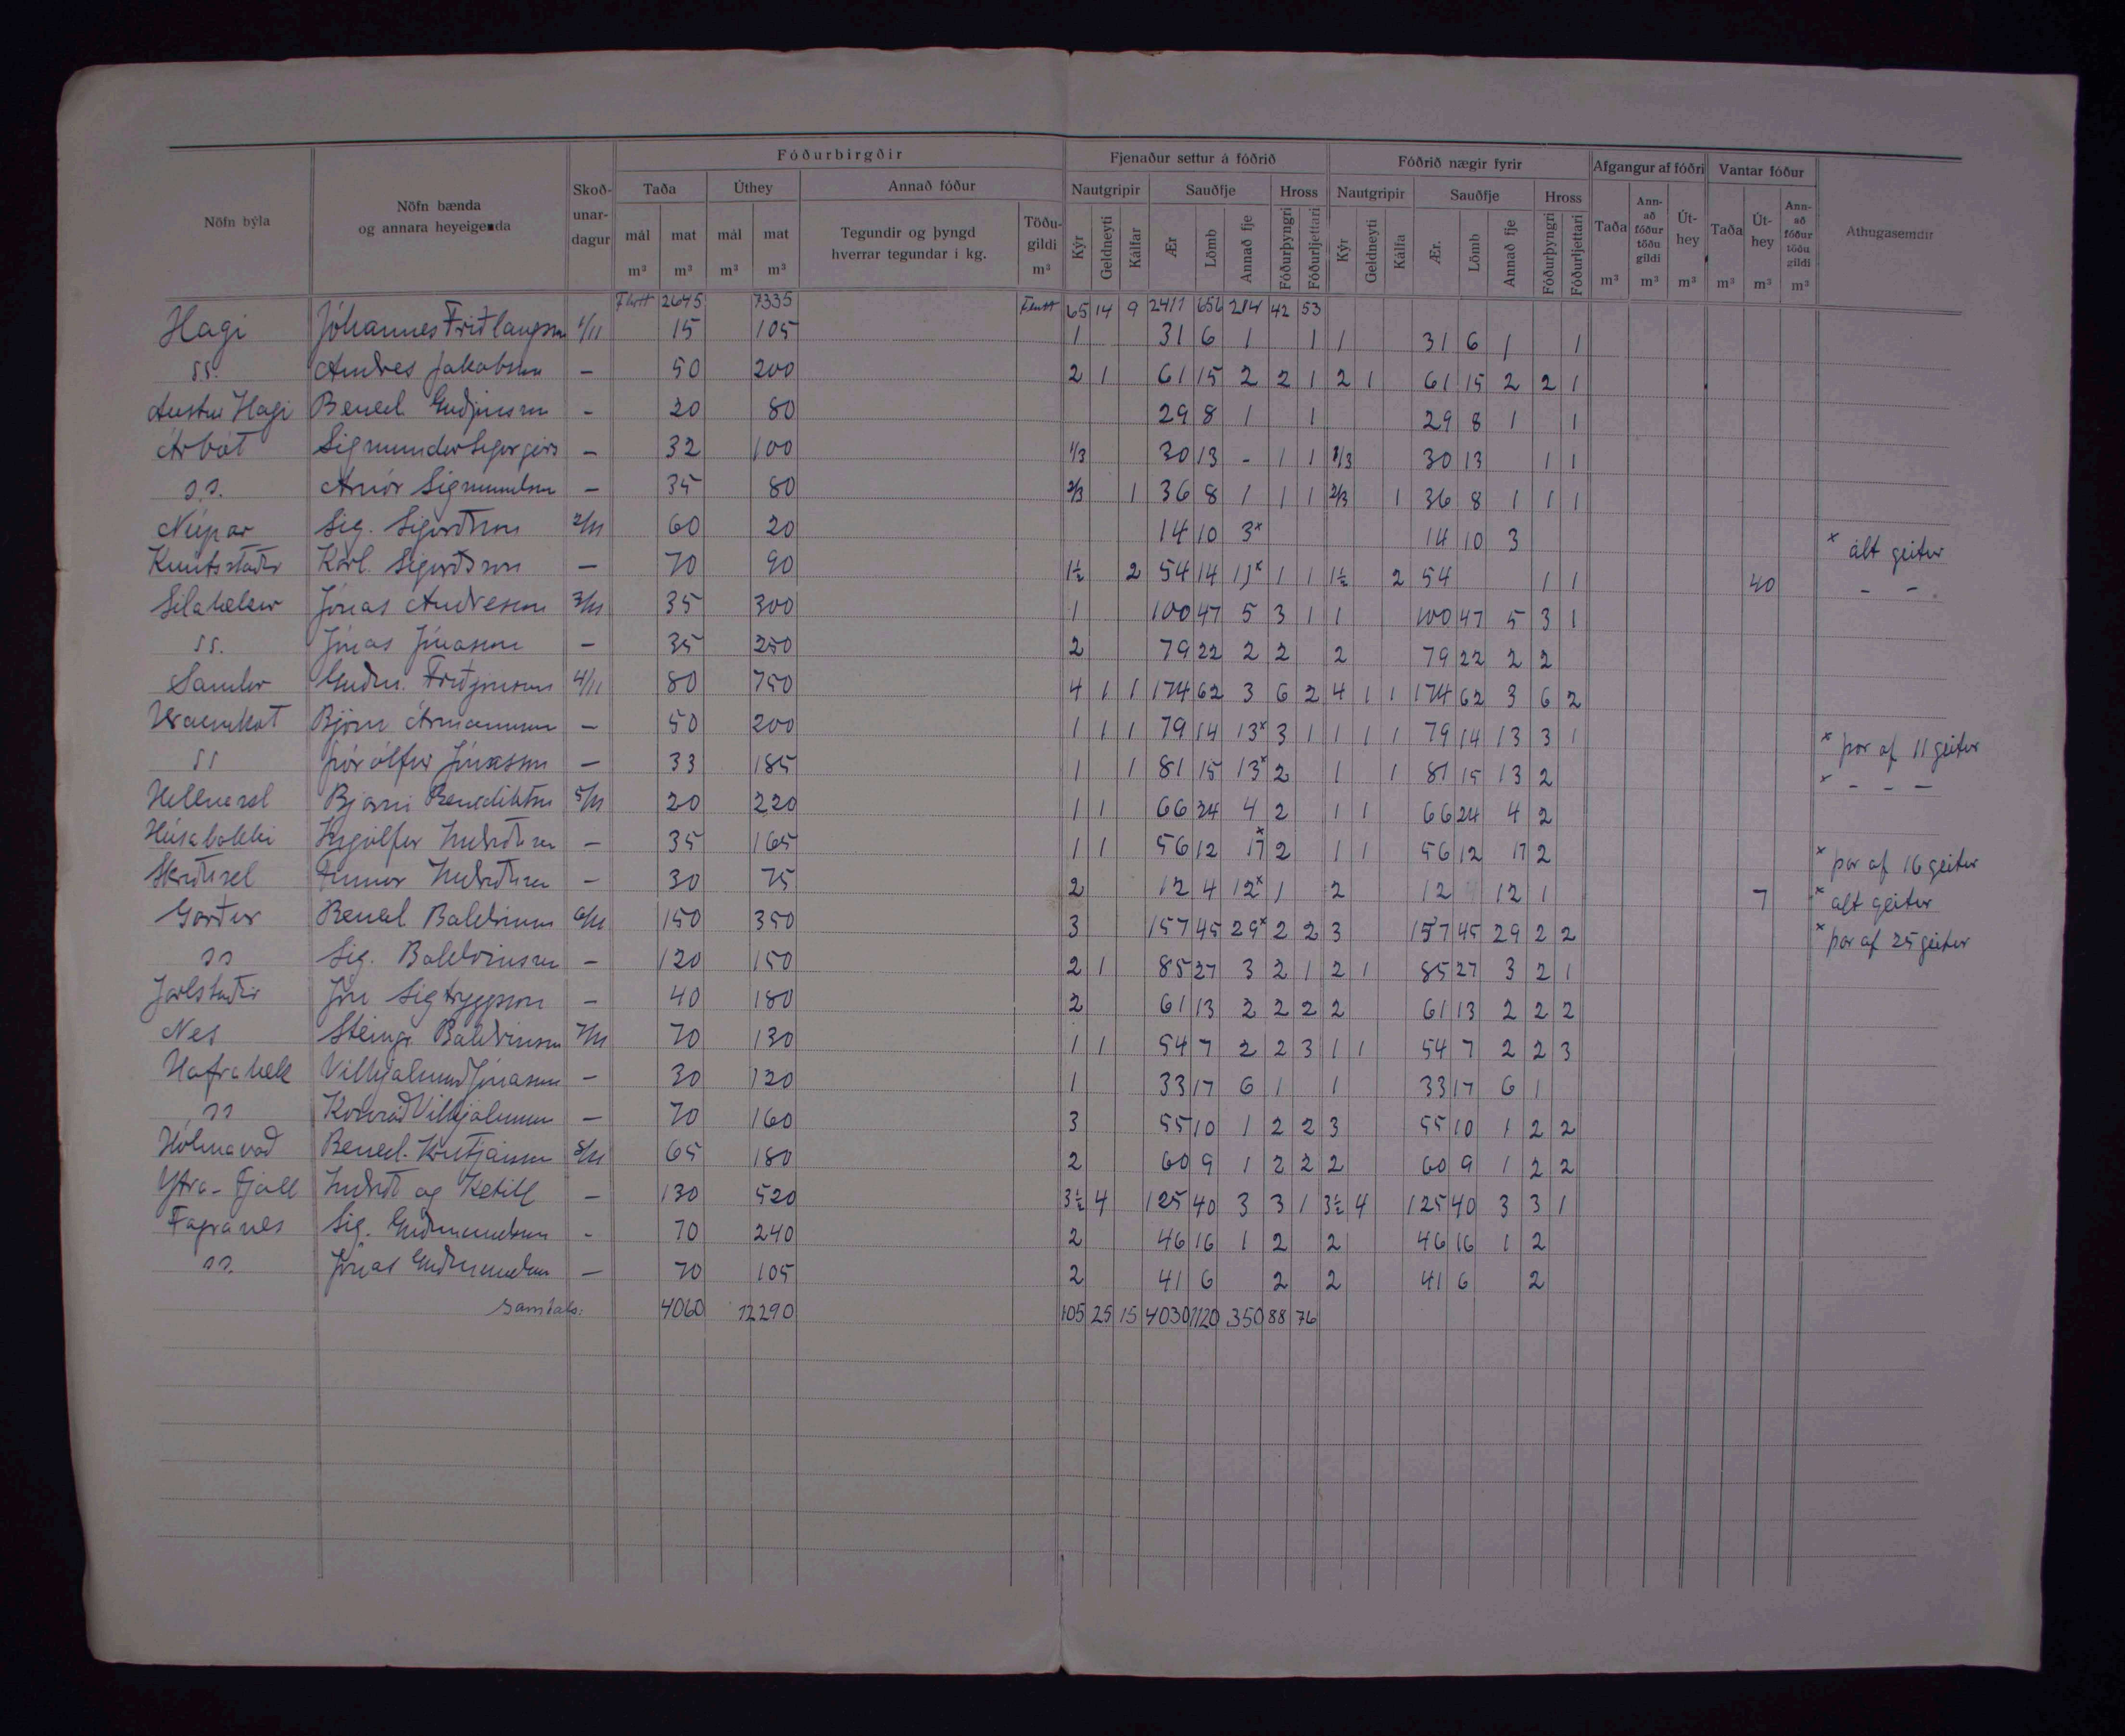 Fóðurbirgðir Fjenaður settur á fóðrið Fóðrið nægir fyrir Afgangur af fóðri Vantar fóður
Nöfn býla Nöfn bænda og annara heyeigenda Skoð-unar-dagur Taða Úthey Annað fóður Nautgripir Sauðfje Hross Nautgripir Sauðfje Hross Taða Ann-að fóður töðu gildi Út-hey Taða Út-hey Ann-að fóður töðu gildi Athugasemdir
mál m³ mat m³ mál m³ mat m³ Tegundir og þyngd hverrar tegundar í kg. Töðu-gildi m³ Kýr Geldneyti Kálfar Ær Lömb Annað fje Fóðurþyngri Fóðurljettari Kýr Geldneyti Kálfa Ær. Lömb Annað fje Fóðurþyngri Fóðurljettari m³ m³ m³ m³ m³ m³
Flutt 2645 7335 Flutt 65 14 9 2411 656 214 42 53
Hagi Jóhannes Friðlaugsson 1/11 15 105 1 31 6 1 1 1 31 6 1 1
ss. Andres Jakobsson – 50 200 2 1 61 15 2 2 1 2 1 61 15 2 2 1
Austur Hagi Bened. Guðjónsson – 20 80 29 8 1 1 29 8 1 1
Árbót Sigmundur – 32 100 1/3 30 13 - 1 1 1/3 30 13 1 1
ss. Arnór Sigmundsson – 35 80 2/3 1 36 8 1 1 1 2/3 1 36 8 1 1 1
Núpar Sig. Sigurðsson 2/11 60 20 14 10 3x 14 10 3 x alt geitur
Knútsstaðir Karl. Sigurðsson – 70 90 1½ 2 54 14 11x 1 1 1½ 2 54 1 1 40 – –
Sílalækur Jónas Andrésson 3/11 35 300 1 100 47 5 3 1 1 100 47 5 3 1
ss. Jónas Jónasson – 35 250 2 79 22 2 2 2 79 22 2 2
Sandur Guðm. Friðjónsson 4/11 80 750 4 1 1 174 62 3 6 2 4 1 1 174 62 3 6 2
Hraunkot Björn Ármannsson – 50 200 1 1 1 79 14 13x 3 1 1 1 1 79 14 13 3 1 x þar af 11 geitur
ss Þórólfur Jónasson – 33 185 1 1 81 15 13x 2 1 1 81 15 13 2 x – – –
Hellnasel Bjarni Benediktsson 5/11 20 220 1 1 66 24 4 2 1 1 66 24 4 2
Húsabakki Ingólfur Indriðason – 35 165 1 1 56 12 17x 2 1 1 56 12 17 2 x þar af 16 geitur
Skriðusel Finnur Indriðason – 30 75 2 12 4 12x 1 2 12 12 1 7 x alt geitur
Garður Bened Baldvinsson 6/11 150 350 3 157 45 29x 2 2 3 157 45 29 2 2 x þar af 25 geitur
ss Sig. Baldvinsson – 120 150 2 1 85 27 3 2 1 2 1 85 27 3 2 1
Jarlstaðir Jón Sigtryggsson – 40 180 2 61 13 2 2 2 2 61 13 2 2 2
Nes Steingr Baldvinsson 7/11 70 130 1 1 54 7 2 2 3 1 1 54 7 2 2 3
Hafralæk Vilhjálmur Jónasson – 30 120 1 33 17 6 1 1 33 17 6 1
ss Konráð Vilhjálmsson – 70 160 3 55 10 1 2 2 3 55 10 1 2 2
Hólmavað Bened. Kristjánsson 8/11 65 180 2 60 9 1 2 2 2 60 9 1 2 2
Ytra-Fjall Indriði og Ketill – 130 520 3½ 4 125 40 3 3 1 3½ 4 125 40 3 3 1
Fagranes Sig. Guðmundsson - 70 240 2 46 16 1 2 2 46 16 1 2
ss. Jónas Guðmundsson – 70 105 2 41 6 2 2 41 6 2
Samtals: 4060 12290 105 25 15 4030 1120 350 88 76